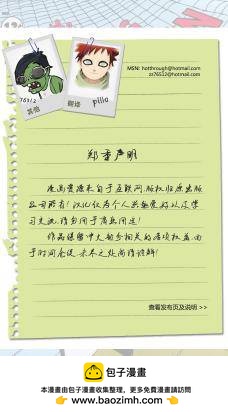 MSN: hotthrough@hotmail.com
zz76512@hotmail.com
76512
翻译
pillo
郑重声明
漫画资源来自于互联网,版权归原出版
公司所有!汉化仅为个人兴趣爱好以及学
习交流,请勿用于商业用途!
作品保留中文部分相关的各项权益,由
于时间仓促,未尽之处尚请谅解!
查看发布页及说明 >>
包子漫畫
本漫畫由包子漫畫收集整理,更多免費漫畫請訪問
www.baozimh.com